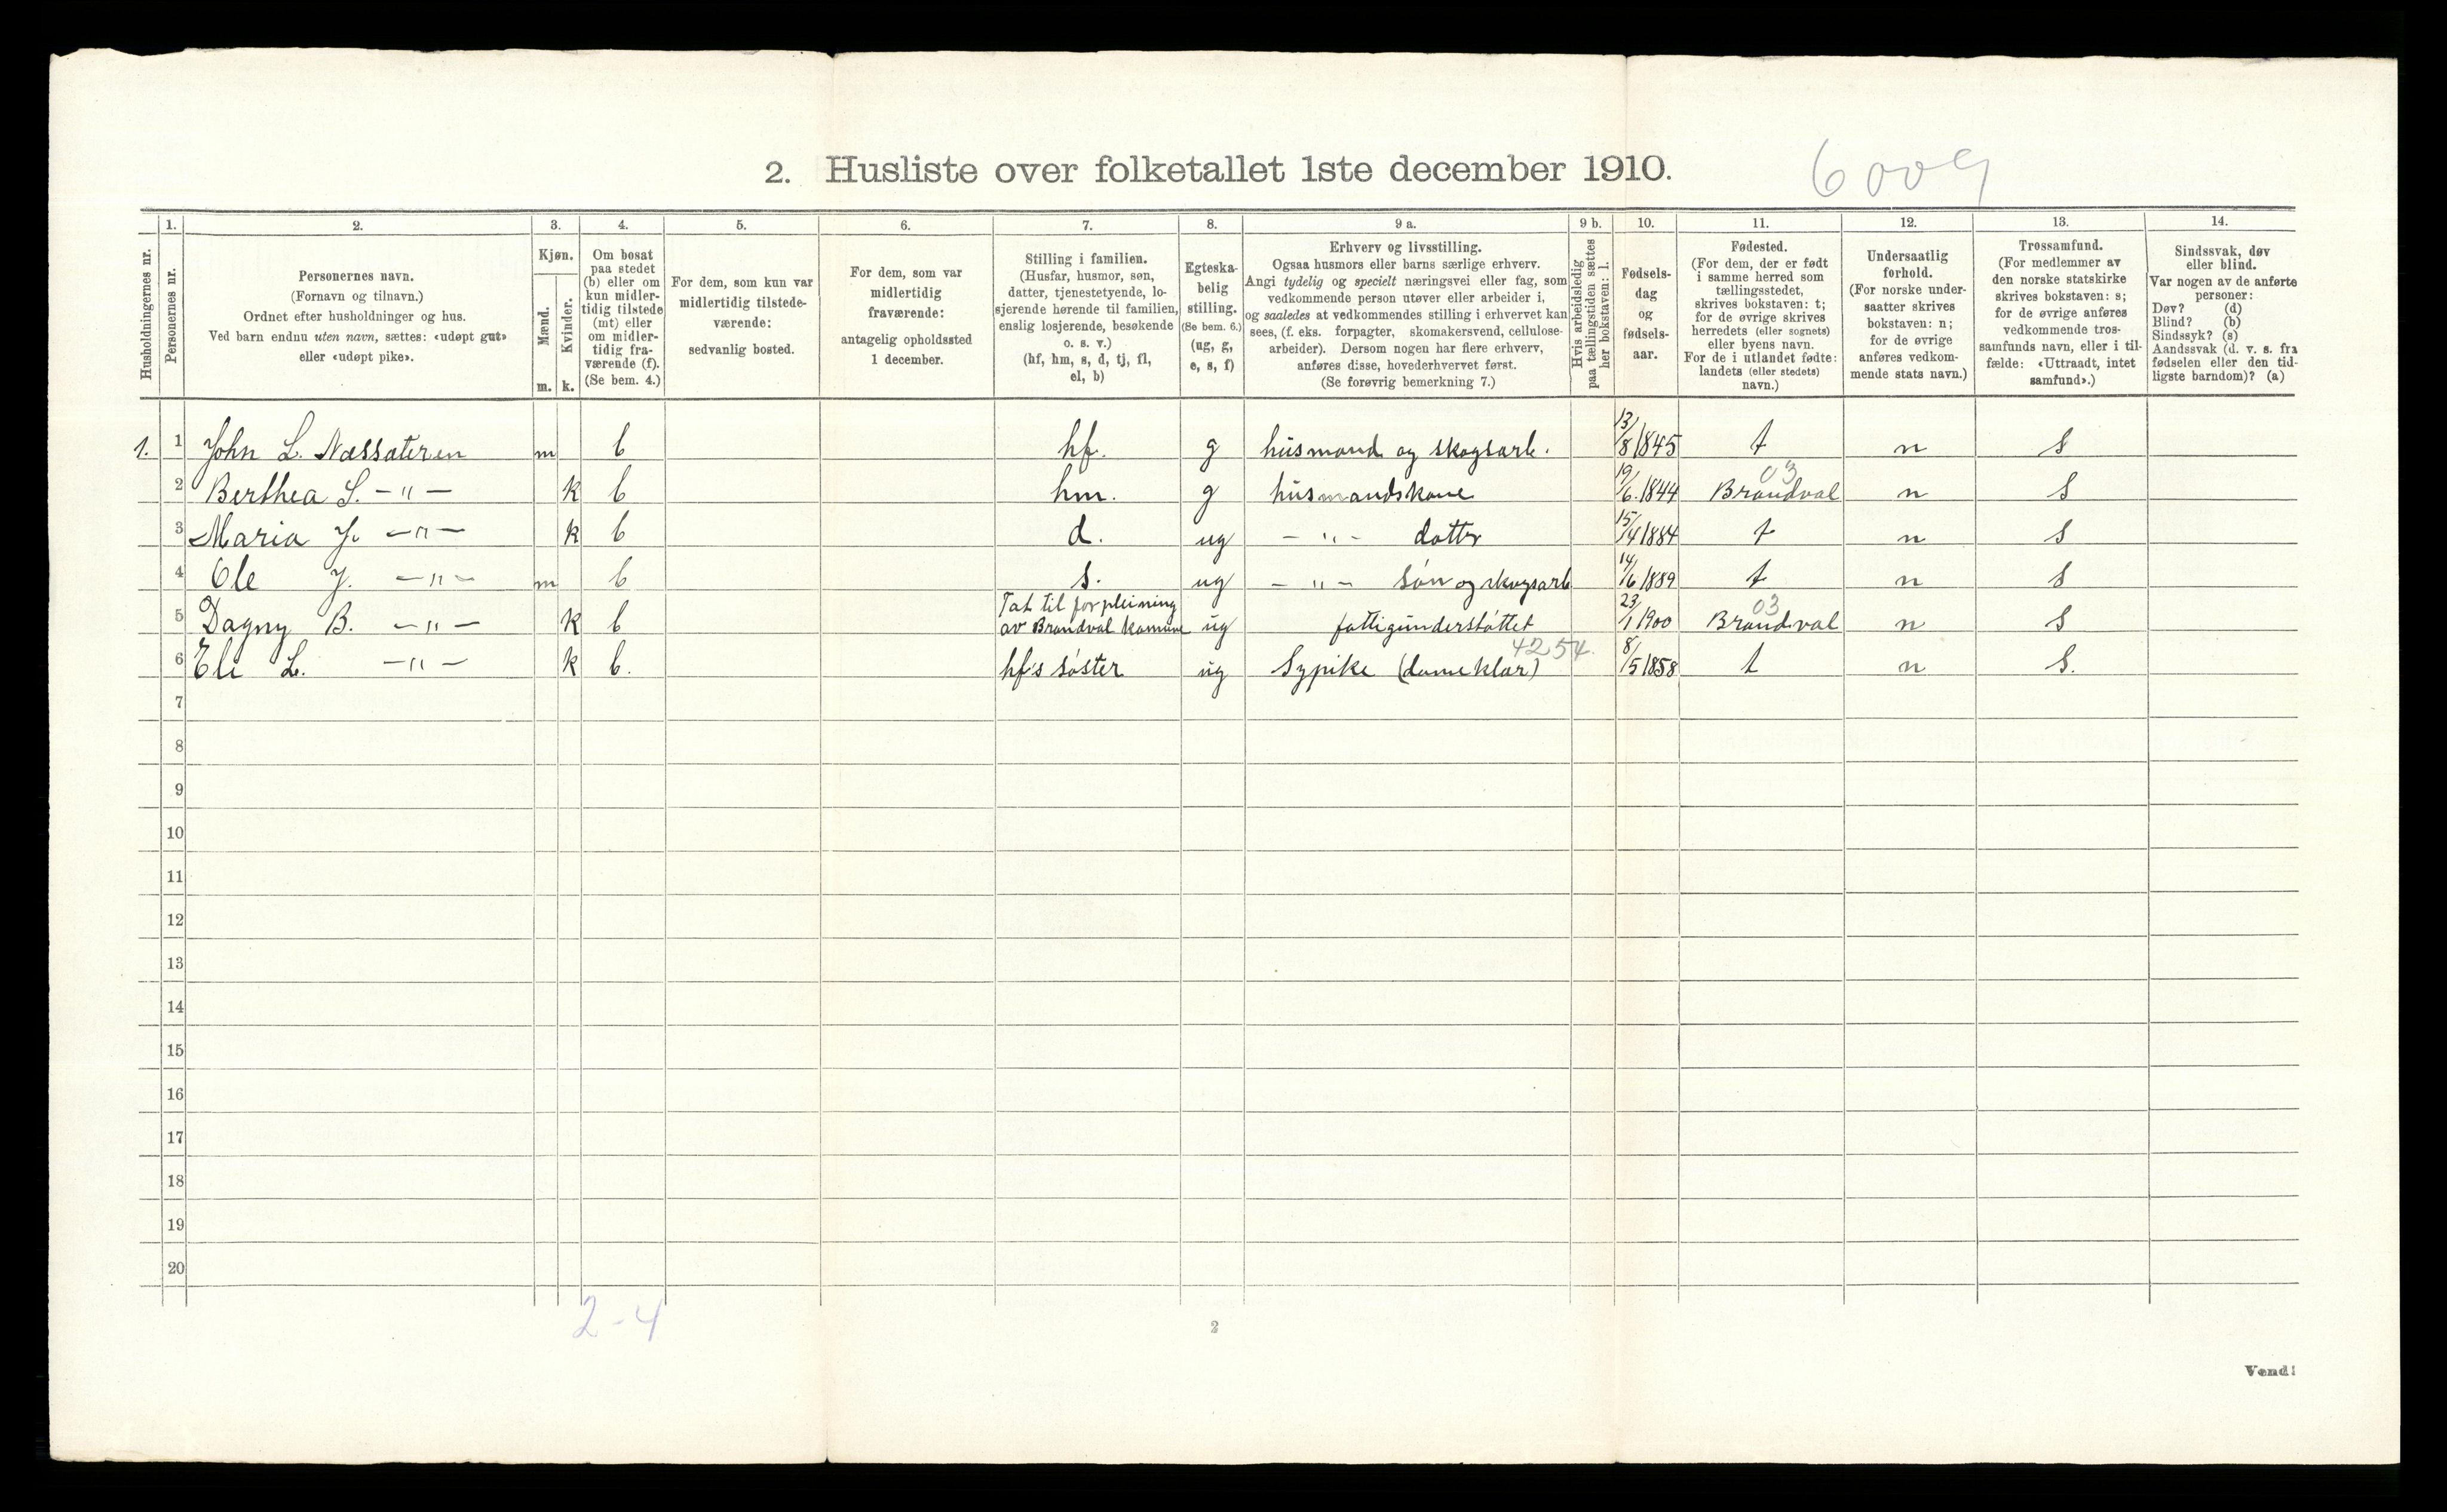 2. Husliste over folketallet 1ste december 1910.
6009
Husholdningernes nr.
1.
Personernes nr.
2.
Personernes navn.
(Fornavn og tilnavn.)
Ordnet efter husholdninger og hus.
Ved barn endnu uten navn, sættes: «udøpt gut»
eller «udøpt pike».
3.
Kjøn.
Mænd.
Kvinder.
m. k.
4.
Om bosat
paa stedet
(b) eller om
kun midler-
tidig tilstede
(mt) eller
om midler-
tidig fra-
værende (f).
(Se bem. 4.)
5.
For dem, som kun var
midlertidig tilstede-
værende:
sedvanlig bosted.
6.
For dem, som var
midlertidig
fraværende:
antagelig opholdssted
1 december.
7.
Stilling i familien.
(Husfar, husmor, søn,
datter, tjenestetyende, lo-
sjerende hørende til familien,
enslig losjerende, besøkende
o. s. v.)
(hf, hm, s, d, tj, fl,
el, b)
8.
Egteska-
belig
stilling.
(Se bem. 6.)
(ug, g,
e, s, f)
9 a.
Erhverv og livsstilling.
Ogsaa husmors eller barns særlige erhverv.
Angi tydelig og specielt næringsvei eller fag, som
vedkommende person utøver eller arbeider i,
og saaledes at vedkommendes stilling i erhvervet kan
sees, (f. eks. forpagter, skomakersvend, cellulose-
arbeider). Dersom nogen har flere erhverv,
anføres disse, hovederhvervet først.
(Se forøvrig bemerkning 7.)
9 b.
Hvis arbeidsledig
paa tællingstiden sættes
her bokstaven: l.
10.
Fødsels-
dag
og
fødsels-
aar.
11.
Fødested.
(For dem, der er født
i samme herred som
tællingsstedet,
skrives bokstaven: t;
for de øvrige skrives
herredets (eller sognets)
eller byens navn.
For de i utlandet fødte:
landets (eller stedets)
navn.)
12.
Undersaatlig
forhold.
(For norske under-
saatter skrives
bokstaven: n;
for de øvrige
anføres vedkom-
mende stats navn.)
13.
Trossamfund.
(For medlemmer av
den norske statskirke
skrives bokstaven: s;
for de øvrige anføres
vedkommende tros-
samfunds navn, eller i til-
fælde: «Uttraadt, intet
samfund».)
14.
Sindssvak, døv
eller blind.
Var nogen av de anførte
personer:
Døv? (d)
Blind? (b)
Sindssyk? (s)
Aandssvak (d. v. s. fra
fødselen eller den tid-
ligste barndom)? (a)
1. 1 John L. Næssæteren m b hf. g husmand og skogsarb. 13/8 1845 t n s
2 Berthea S. -"- k b hm. g husmandskone 19/6.1844 Brandval 03 n s
3 Maria J. -"- k b d. ug -"- datter 15/4 1884 t n s
4 Ole J. -"- m b s. ug -"- søn og skogsarb 14/6 1889 t n s
5 Dagny B. -"- k b Tat til forpleining av Brandval komune ug fattigunderstøttet 23/1 1900 Brandval 03 n s
6 Eli L. -"- k b. hf's søster ug Sypike (dameklær) 4254. 8/5 1858 t n s.
7
8
9
10
11
12
13
14
15
16
17
18
19
20
2-4
2
Vend!